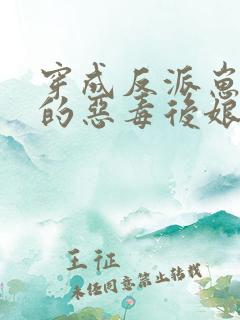 穿成反派崽
的惡毒後娘
王征
未经同意禁止转载